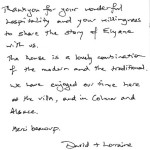 Thankyou for your wonderful
hospitality and your willingness
to share the story of Elyane
with us.
The house is a lovely combination
of the modern and the traditional.
We have enjoyed our time here
at the villa, and in Colmar and
Alsace.
Merci beaucoup.
David + Lorraine